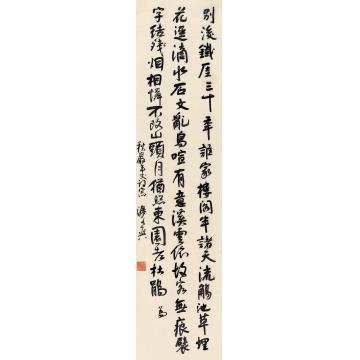 別後鐵厓三十年誰家樓閣半諸天流觴池草埋
花逕滴水石文亂鳥喧有意溪雲依故客無痕
字繞殘烟相憐不改山頭月猶照東園老杜鵑